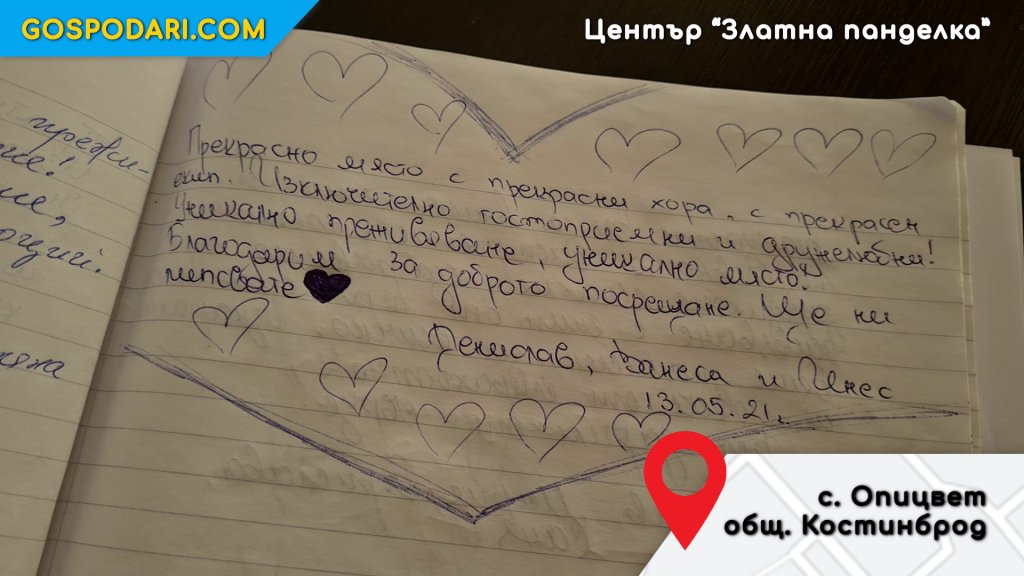 GOSPODARI.COM
Център “Златна панделка“
Прекрасно място с прекрасни хора, с прекрасен
екип. Изключително гостоприемни и дружелюбни!
Уникално преживяване, уникално място.
Благодарим за доброто посрещане. Ще ни
липсвате
Денислав, Ванеса и Инес
13.05.21г.
с. Опицвет
общ. Костинброд